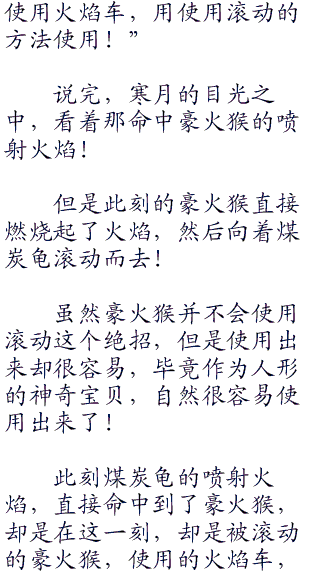 使用火焰车，用使用滚动的
方法使用！”
说完，寒月的目光之
中，看着那命中豪火猴的喷
射火焰！
但是此刻的豪火猴直接
燃烧起了火焰，然后向着煤
炭龟滚动而去！
虽然豪火猴并不会使用
滚动这个绝招，但是使用出
来却很容易，毕竟作为人形
的神奇宝贝，自然很容易使
用出来了！
此刻煤炭龟的喷射火
焰，直接命中到了豪火猴，
却是在这一刻，却是被滚动
的豪火猴，使用的火焰车，